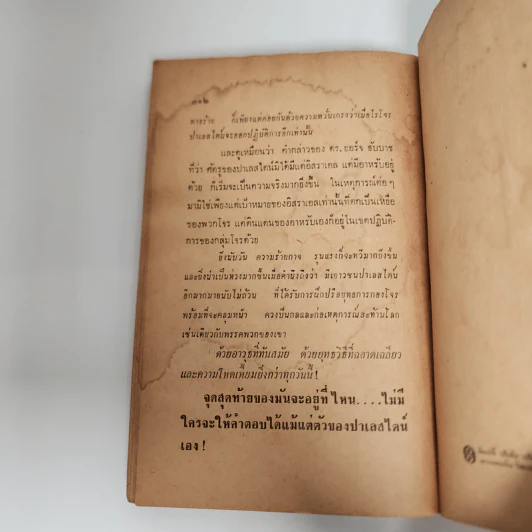 ๓๑๒
ทารร้าย ก็เพียงแต่คอยกันด้วยความหวั่นเกรงว่าเมื่อไรโจร
ปาเลสไตน์จะออกปฏิบัติการอีกเท่านั้น
และดูเหมือนว่า คำกล่าวของ ดร. ยอร์จ ฮับบาช
ที่ว่า ศัตรูของปาเลสไตน์มิได้มีแต่อิสราเอล แต่มีอาหรับอยู่
ด้วย ก็เริ่มจะเป็นความจริงมากยิ่งขึ้น ในเหตุการณ์ต่อ ๆ
มามิใช่เพียงแต่เป้าหมายของอิสราเอลเท่านั้นที่ตกเป็นเหยื่อ
ของพวกโจร แต่ดินแดนของอาหรับเองก็อยู่ในเขตปฏิบัติ-
การของกลุ่มโจรด้วย
ยิ่งนับวัน ความร้ายกาจ รุนแรงก็จะทวีมากยิ่งขึ้น
และยิ่งน่าเป็นห่วงมากขึ้นเมื่อคำนึงถึงว่า มีเยาวชนปาเลสไตน์
อีกมากมายนับไม่ถ้วน ที่ได้รับการฝึกปรือยุทธการกองโจร
พร้อมที่จะคลุมหน้า ควงปืนกลและก่อเหตุการณ์สะท้านโลก
เช่นเดียวกับพรรคพวกของเขา
ด้วยอาวุธที่ทันสมัย ด้วยยุทธวิธีที่ฉลาดเฉลียว
และความโหดเหี้ยมยิ่งกว่าทุกวันนี้ !
จุดสุดท้ายของมันจะอยู่ที่ไหน....ไม่มี
ใครจะให้คำตอบได้แม้แต่ตัวของปาเลสไตน์
เอง !